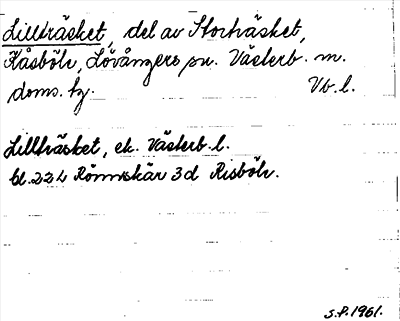 Lillträsket, del av Storträsket,
Kåsböle, Lövångers sn. Västerb. m.
doms. tg. Vb. l.
Lillträsket, ek. Västerb. l.
bl. 224 Rönnskär 3d Risböle.
S.P. 1961.